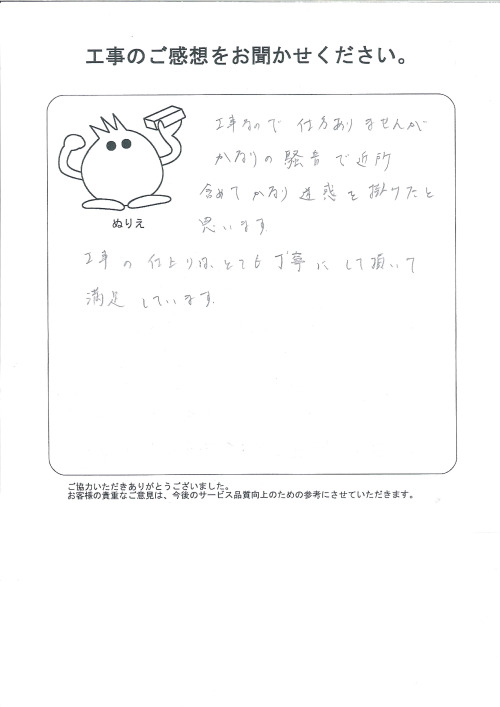 工事のご感想をお聞かせください。
工事なので 仕方ありませんが
かなりの騒音で近所
含めてかなり迷惑を掛けたと
思います。
ぬりえ
工事の仕上りは、とても丁寧にして頂いて
満足しています。
ご協力いただきありがとうございました。
お客様の貴重なご意見は、今後のサービス品質向上のための参考にさせていただきます。